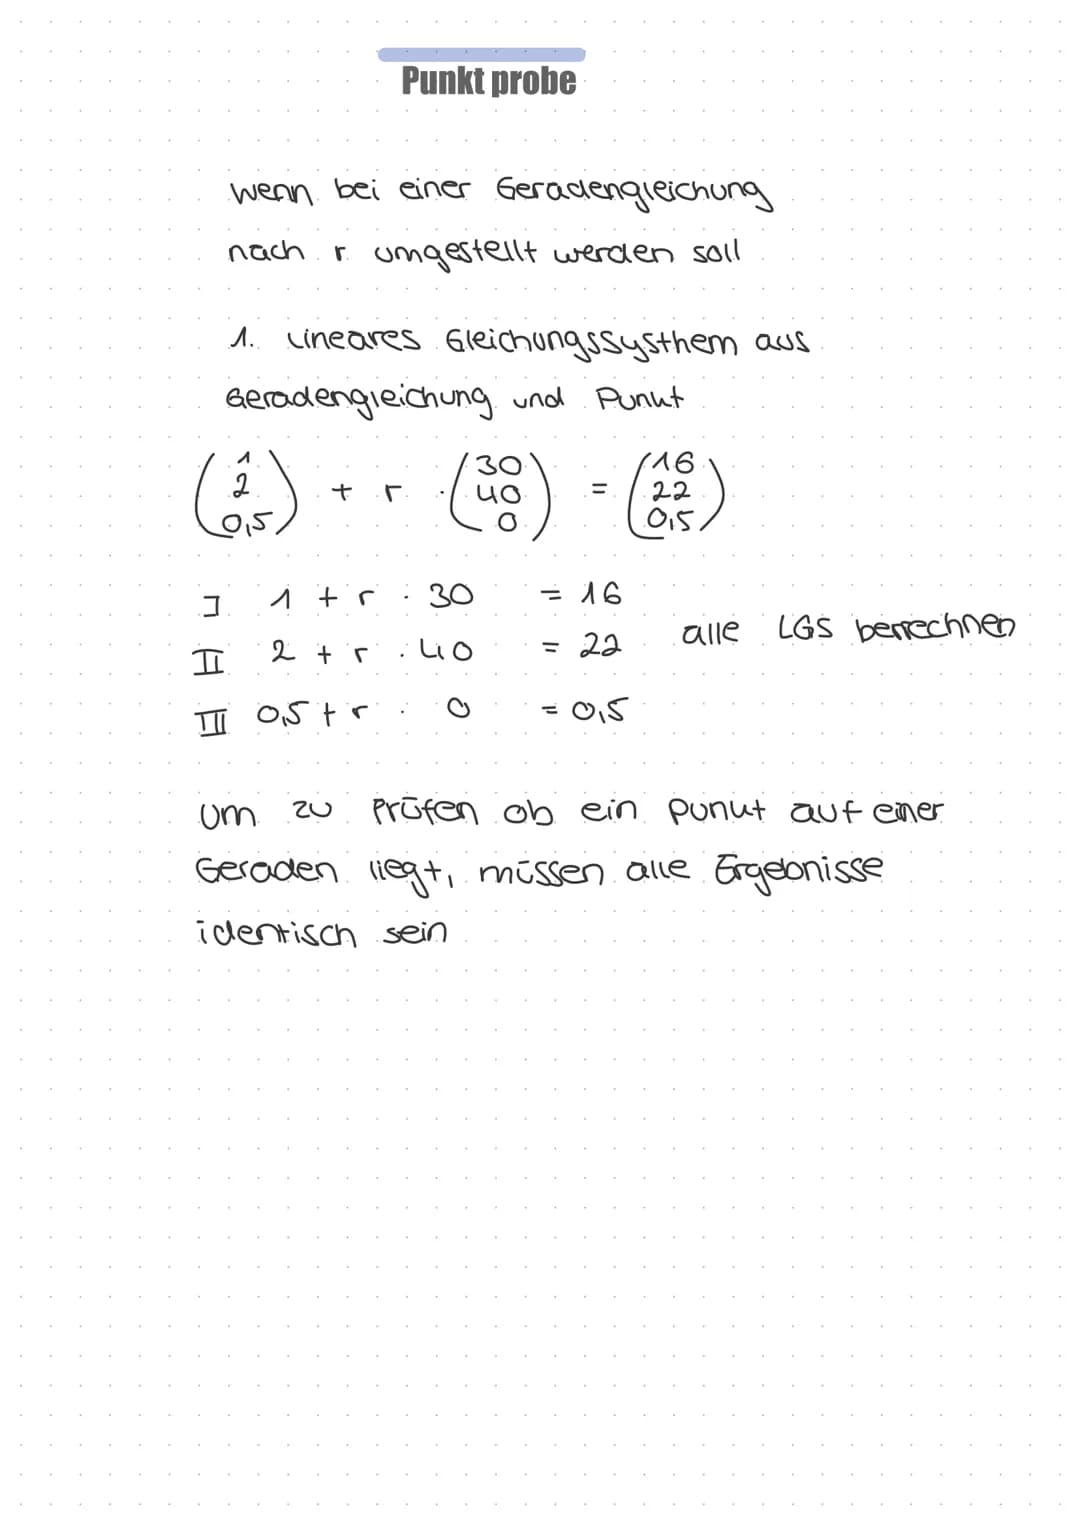 Punkt probe
wenn bei einer Geradengleichung
nach r umgestellt werden soll
1. Lineares Gleichungssysthem aus
Geradengleichung und Punkt
(1 2 0,5) + r · (30 40 0) = (16 22 0,5)
I 1 + r · 30 = 16
II 2 + r · 40 = 22 alle LGS berrechnen
III 0,5 + r · 0 = 0,5
Um zu Prüfen ob ein Punkt auf einer
Geraden liegt, müssen alle Ergebnisse
identisch sein